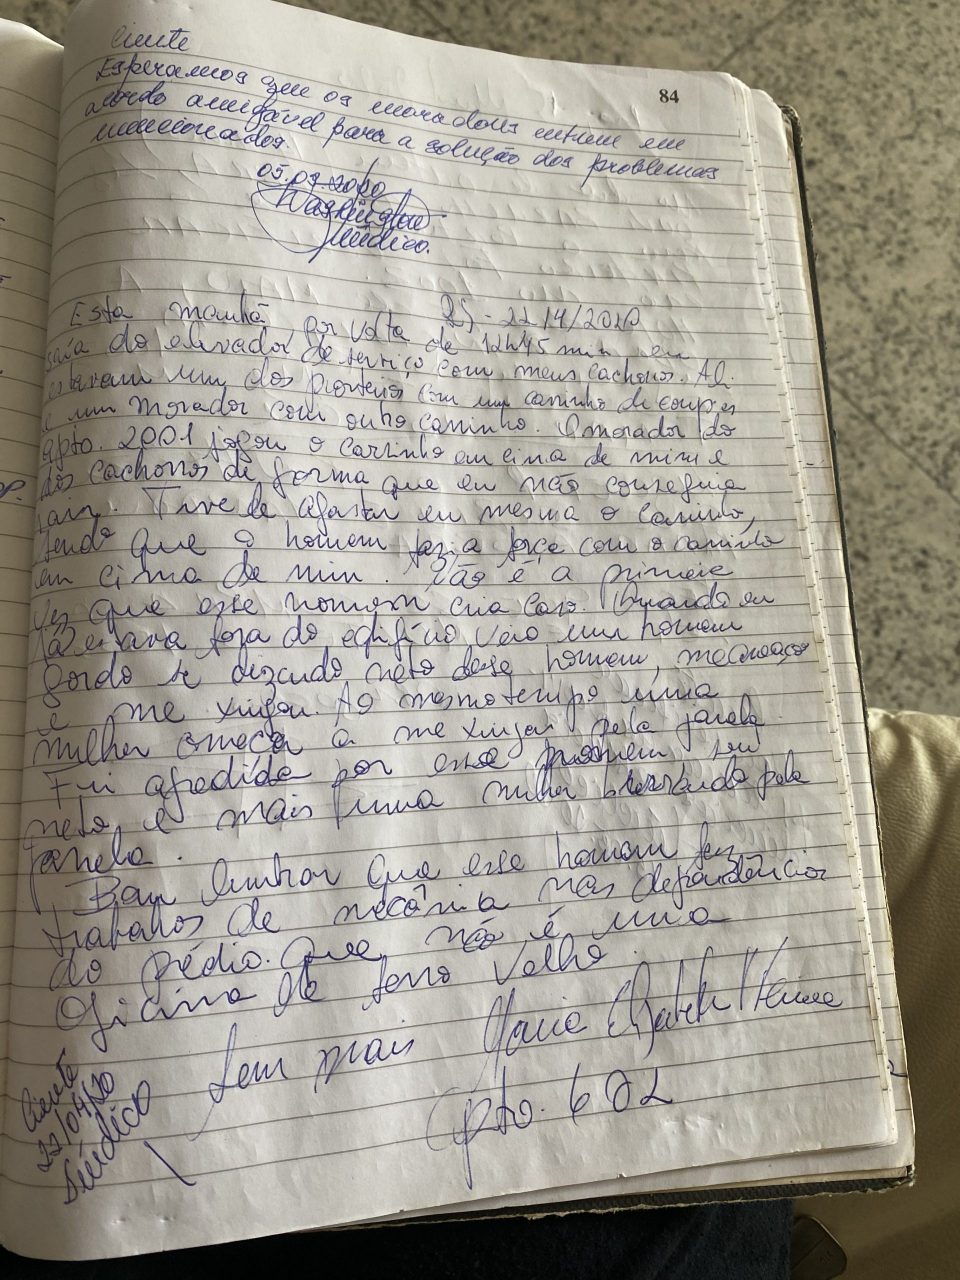 84
Ciente
Esperamos que os moradores entrem em
acordo amigável para a solução dos problemas
mencionados.
05.09.2000
Washington
Síndico.
22/4/2020
Esta manhã por volta de 12h45 min eu
saía do elevador de serviço com meus cachorros. Ali
estavam um dos porteiros com um carrinho de compras
e um morador com outro carrinho. O morador do
apto. 2001 jogou o carrinho em cima de mim e
dos cachorros de forma que eu não conseguia
sair. Tive de afastar eu mesma o carrinho,
sendo que o homem fazia força com o carrinho
em cima de mim. Não é a primeira
vez que esse homem cria caso. Quando eu
já estava fora do edifício veio um homem
gordo se dizendo neto desse homem, me
e me xingou. Ao mesmo tempo uma
mulher começou a me xingar pela janela.
Fui agredida por esse homem seu
neto, e mais uma mulher berrando pela
janela.
Bom lembrar que esse homem fez
trabalhos de mecânica nas dependências
do prédio. Que não é uma
oficina de ferro velho.
Sem mais Maria Elizabeth
apto. 602
Ciente
22/04/20
Síndico